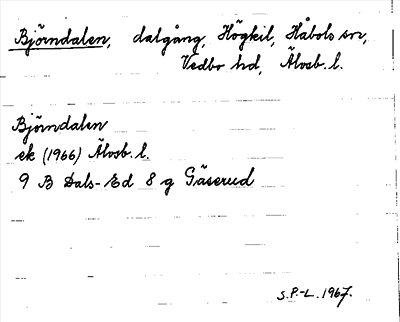 Björndalen, dalgång, Högkil, Håbols sn,
Vedbo hd, Älvsb. l.
Björndalen
ek (1966) Älvsb. l.
9 B Dals-Ed 8 g Gäserud
S.P.-L. 1967.